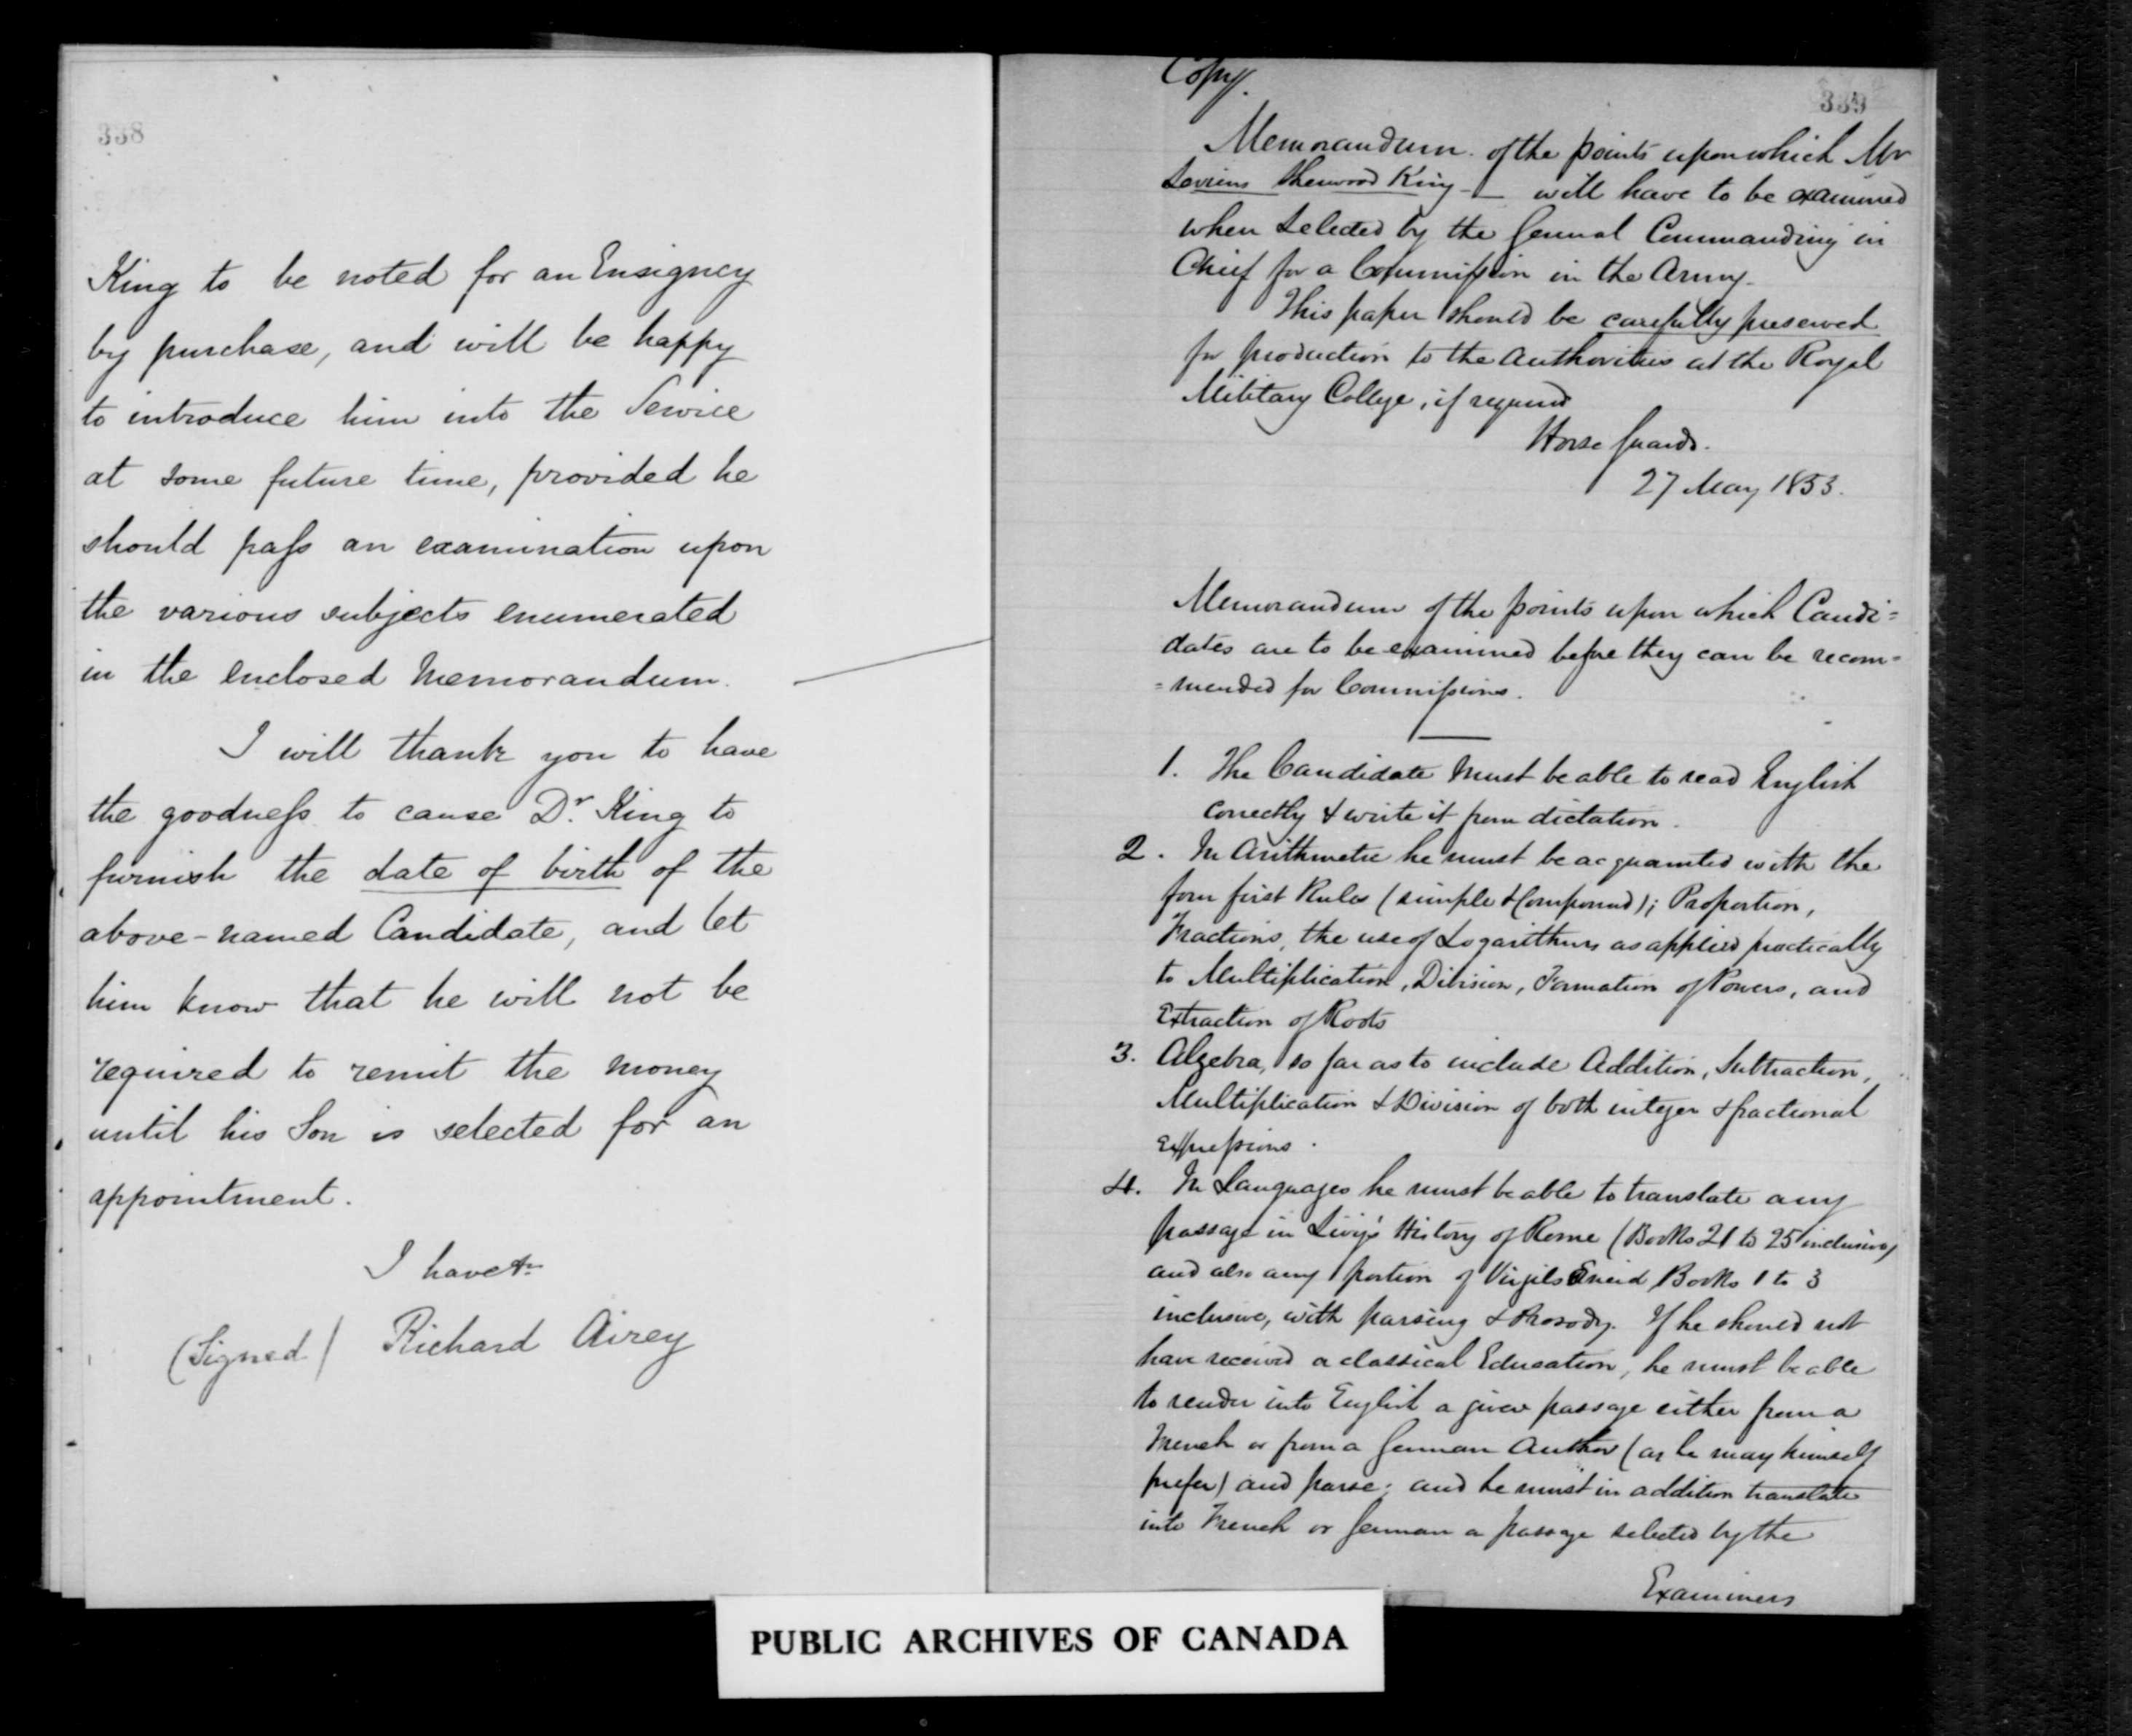 338
King to be noted for an Ensigncy
by purchase, and will be happy
to introduce him into the Service
at some future time, provided he
should pass an examination upon
the various subjects enumerated
in the enclosed Memorandum.
I will thank you to have
the goodness to cause Dr. King to
furnish the date of birth of the
above-named Candidate, and let
him know that he will not be
required to remit the money
until his Son is selected for an
appointment.
I have &c
(Signed) Richard Airey
Copy.
339
Memorandum of the points upon which Mr
Sherwood King - will have to be examined
when selected by the General Commanding in
Chief for a Commission in the Army.
This paper should be carefully preserved
for production to the Authorities at the Royal
Military College, if required
Horse Guards.
27 May 1853.
Memorandum of the points upon which Candi=
dates are to be examined before they can be recom=
=mended for Commissions.
1. The Candidate must be able to read English
correctly & write it from dictation.
2. In Arithmetic he must be acquainted with the
four first Rules (simple & Compound); Proportion,
Fractions, the use of Logarithms as applied practically
to Multiplication, Division, Formation of Powers, and
Extraction of Roots
3. Algebra, so far as to include Addition, Subtraction,
Multiplication & Division of both integer & fractional
Expressions.
4. In Languages he must be able to translate any
passage in Livy's History of Rome (Books 21 to 25 inclusive)
and also any portion of Virgils Eneid Books 1 to 3
inclusive, with parsing & Prosody. If he should not
have received a classical Education, he must be able
to render into English a given passage either from a
French or from a German Author (as he may himself
prefer) and parse; and he must in addition translate
into French or German a passage selected by the
Examiners
PUBLIC ARCHIVES OF CANADA